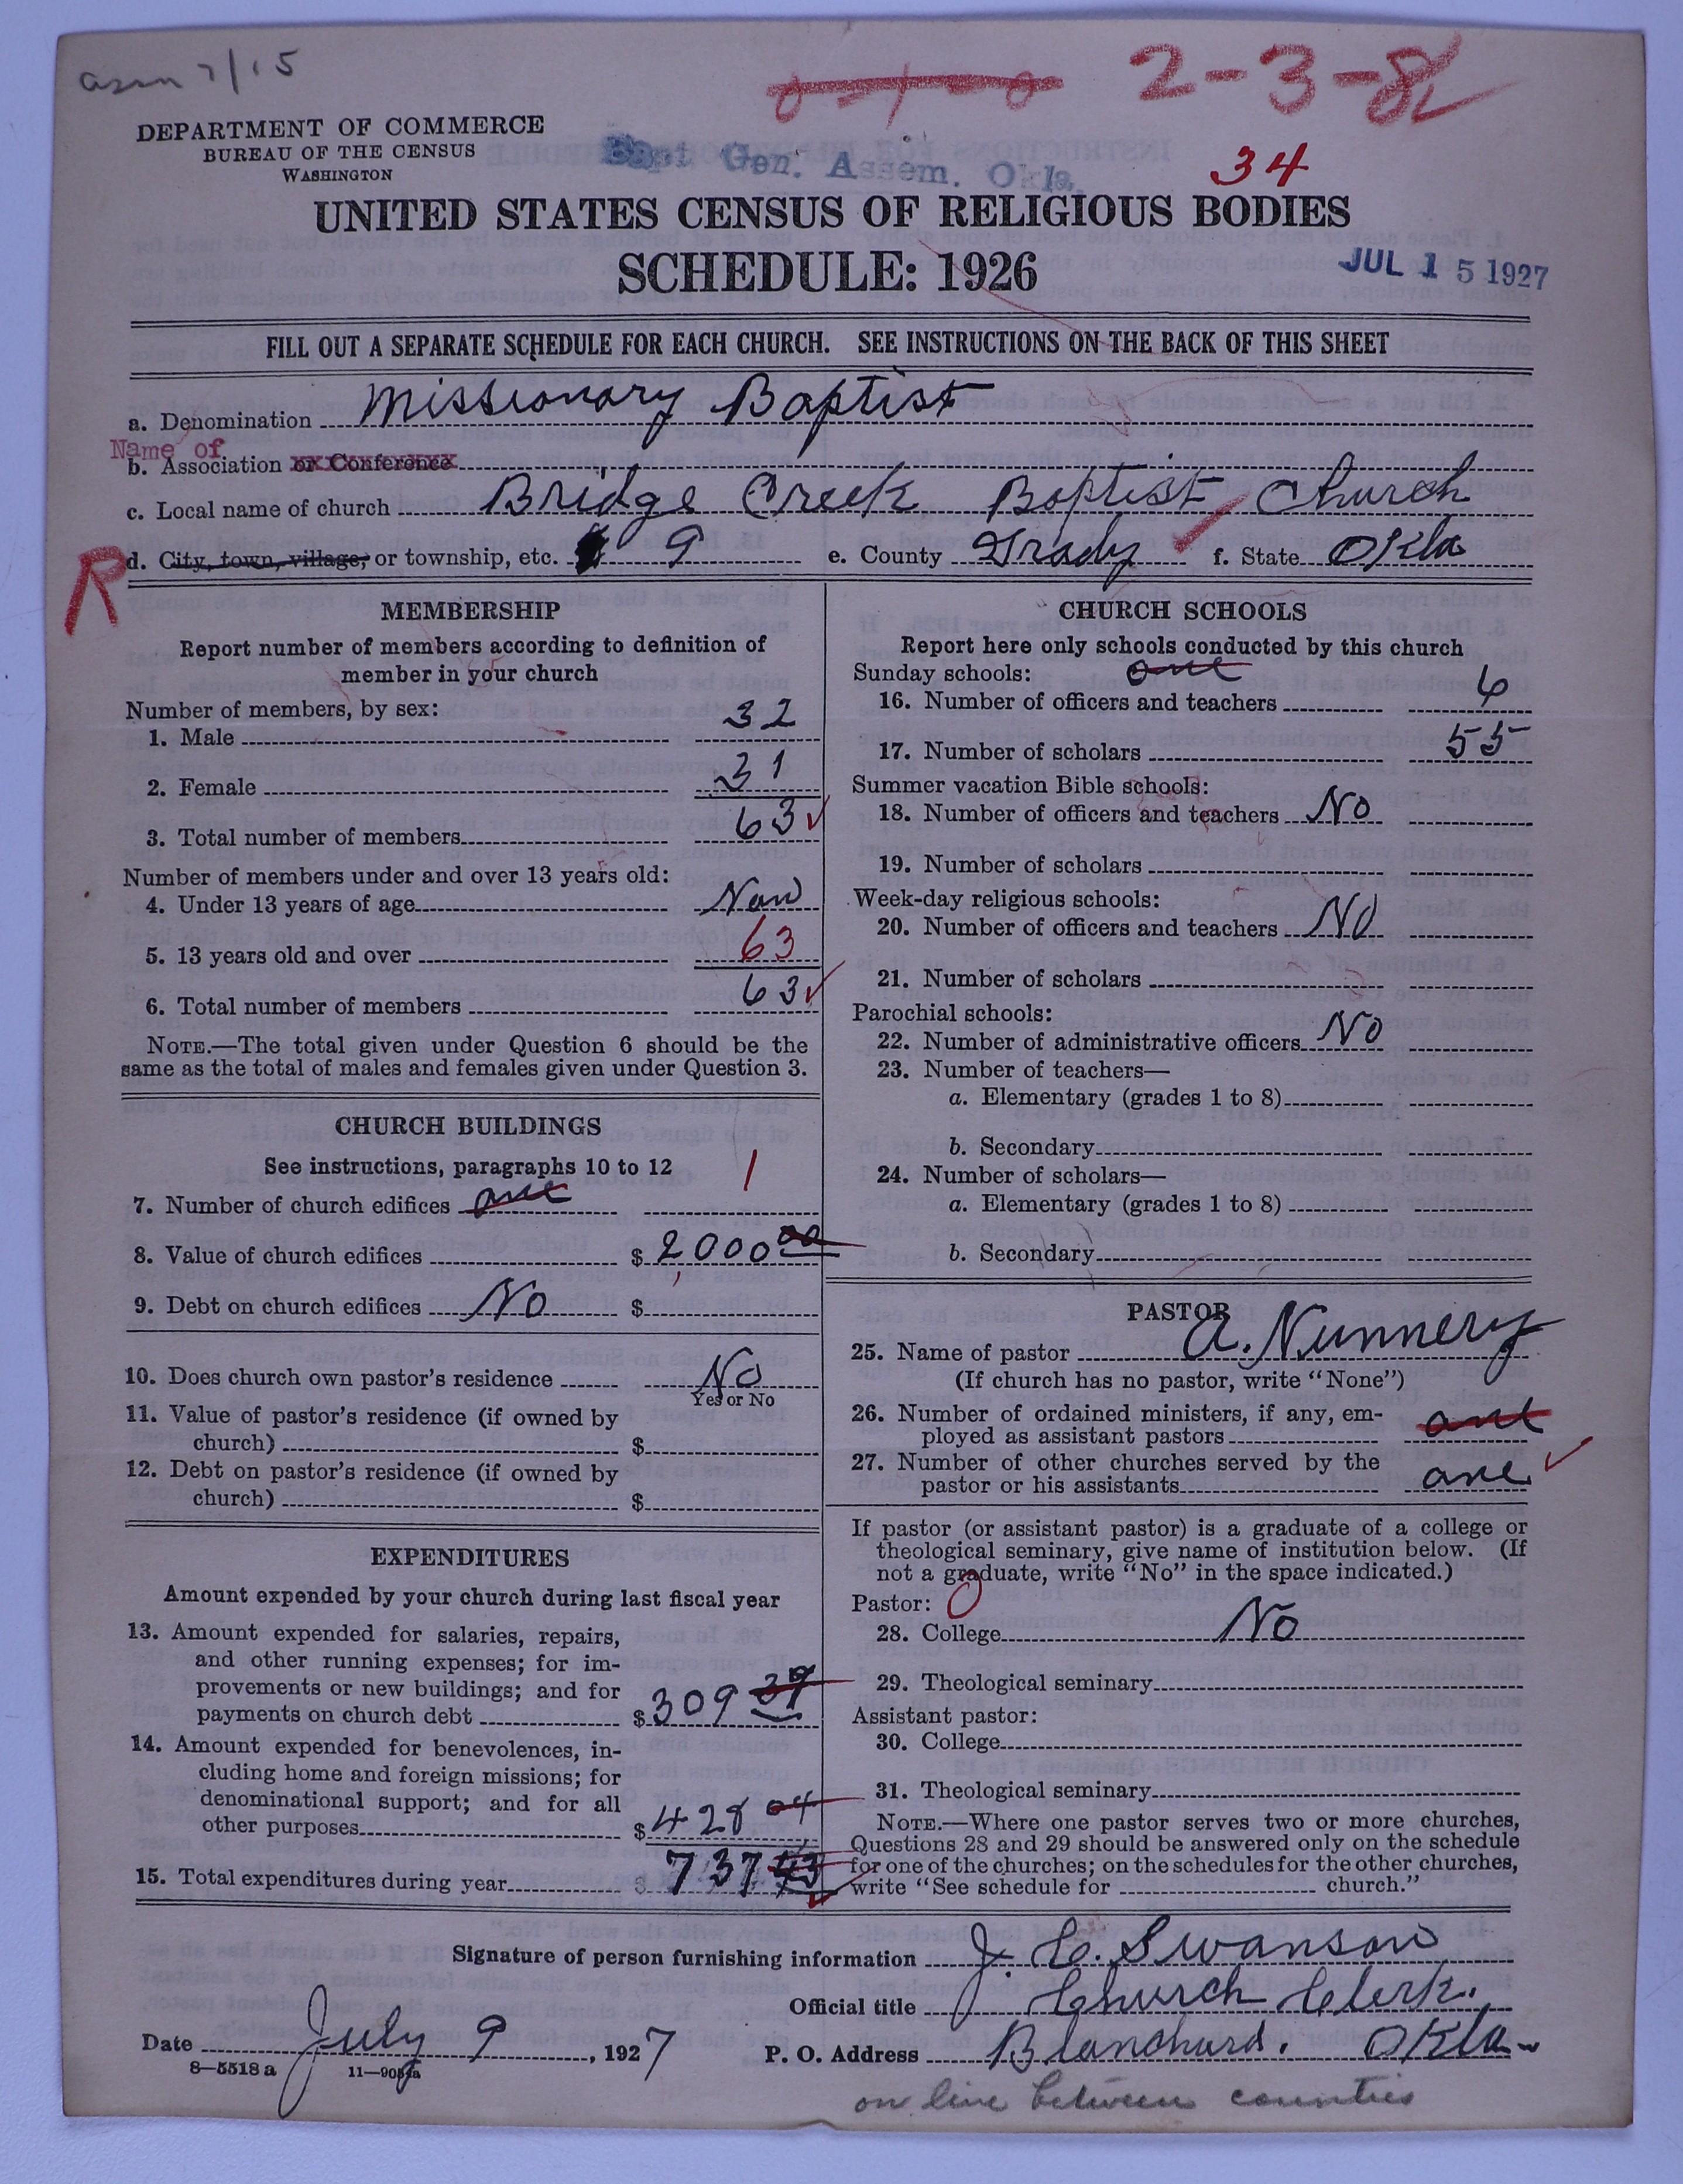 asm 7/15
2-3-82
DEPARTMENT OF COMMERCE
BUREAU OF THE CENSUS
WASHINGTON
Bapt Gen. Assem. Okla.
34
UNITED STATES CENSUS OF RELIGIOUS BODIES
SCHEDULE: 1926
JUL 15 1927
FILL OUT A SEPARATE SCHEDULE FOR EACH CHURCH. SEE INSTRUCTIONS ON THE BACK OF THIS SHEET
a. Denomination Missionary Baptist
Name of
b. Association or Conference
c. Local name of church Bridge Creek Baptist Church
R
d. City, town, village, or township, etc. 9 e. County Grady f. State Okla
MEMBERSHIP
Report number of members according to definition of
member in your church
Number of members, by sex:
1. Male 32
2. Female 31
3. Total number of members 63
Number of members under and over 13 years old:
4. Under 13 years of age Non
5. 13 years old and over 63
6. Total number of members 63
NOTE.—The total given under Question 6 should be the
same as the total of males and females given under Question 3.
CHURCH BUILDINGS
See instructions, paragraphs 10 to 12
7. Number of church edifices one 1
8. Value of church edifices $ 2000 00
9. Debt on church edifices No $
10. Does church own pastor's residence No
Yes or No
11. Value of pastor's residence (if owned by
church) $
12. Debt on pastor's residence (if owned by
church) $
EXPENDITURES
Amount expended by your church during last fiscal year
13. Amount expended for salaries, repairs,
and other running expenses; for im-
provements or new buildings; and for
payments on church debt $ 309 39
14. Amount expended for benevolences, in-
cluding home and foreign missions; for
denominational support; and for all
other purposes $ 428 04
15. Total expenditures during year $ 737 43
CHURCH SCHOOLS
Report here only schools conducted by this church
Sunday schools: one
16. Number of officers and teachers 6
17. Number of scholars 55
Summer vacation Bible schools:
18. Number of officers and teachers No
19. Number of scholars
Week-day religious schools:
20. Number of officers and teachers No
21. Number of scholars
Parochial schools:
22. Number of administrative officers No
23. Number of teachers—
a. Elementary (grades 1 to 8)
b. Secondary
24. Number of scholars—
a. Elementary (grades 1 to 8)
b. Secondary
PASTOR
25. Name of pastor A. Nunnery
(If church has no pastor, write "None")
26. Number of ordained ministers, if any, em-
ployed as assistant pastors one
27. Number of other churches served by the
pastor or his assistants one
If pastor (or assistant pastor) is a graduate of a college or
theological seminary, give name of institution below. (If
not a graduate, write "No" in the space indicated.)
Pastor: 0
28. College No
29. Theological seminary
Assistant pastor:
30. College
31. Theological seminary
NOTE.—Where one pastor serves two or more churches,
Questions 28 and 29 should be answered only on the schedule
for one of the churches; on the schedules for the other churches,
write "See schedule for church."
Signature of person furnishing information J. C. Swanson
Official title Church Clerk.
Date July 9, 1927 P. O. Address Blanchard. Okla
8—5518 a
on line between counties